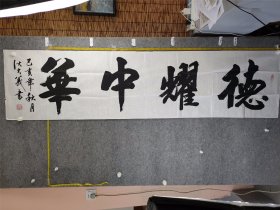 德耀中華
己亥年秋月